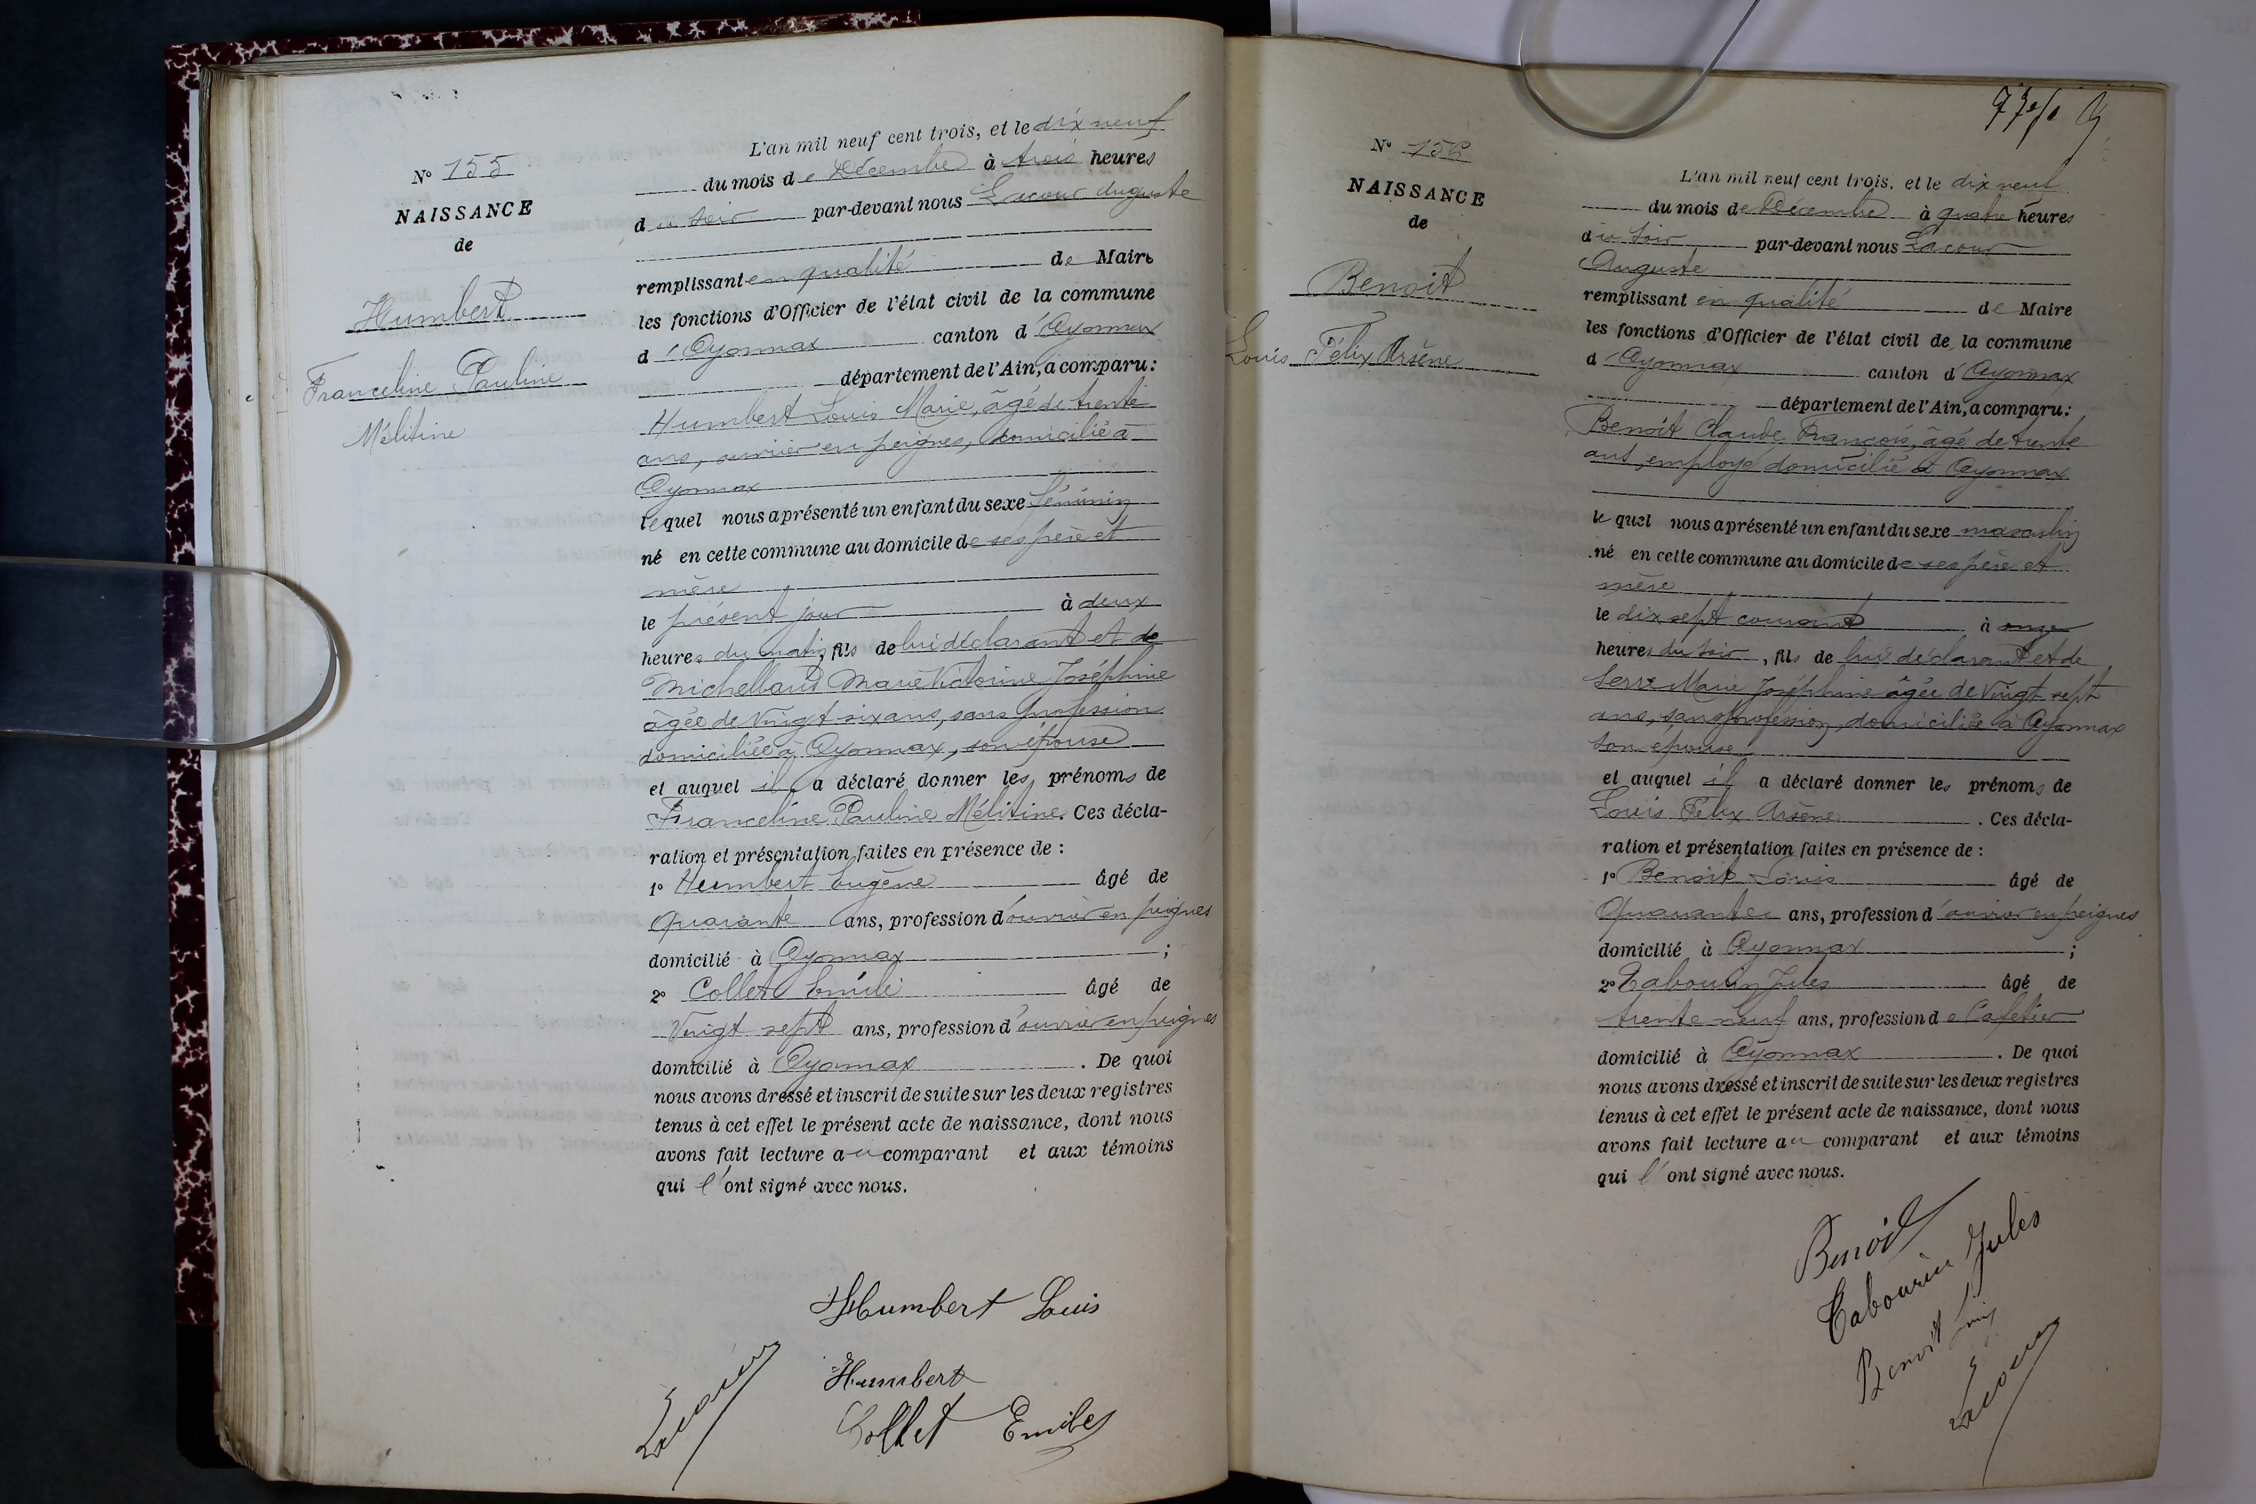 N° 155
NAISSANCE
de
Humbert
Franceline Pauline
Mélitine
L'an mil neuf cent trois, et le dix neuf
du mois de Décembre à trois heures
du soir par-devant nous Lacour Auguste
remplissant en qualité de Maire
les fonctions d'Officier de l'état civil de la commune
d'Oyonnax canton d'Oyonnax
département de l'Ain, a comparu:
Humbert Louis Marie, âgé de trente
ans, ouvrier en peignes, domicilié à
Oyonnax
lequel nous a présenté un enfant du sexe féminin
né en cette commune au domicile de ses père et
mère
le présent jour à deux
heures du matin, fils de lui déclarant et de
Michelland Marie Victorine Joséphine
âgée de Vingt six ans, sans profession
domiciliée à Oyonnax, son épouse
et auquel il a déclaré donner les prénoms de
Franceline Pauline Mélitine. Ces décla-
ration et présentation faites en présence de :
1° Humbert Eugène âgé de
Quarante ans, profession d'ouvrier en peignes
domicilié à Oyonnax ;
2° Collet Emile âgé de
Vingt sept ans, profession d'ouvrier en peignes
domicilié à Oyonnax . De quoi
nous avons dressé et inscrit de suite sur les deux registres
tenus à cet effet le présent acte de naissance, dont nous
avons fait lecture au comparant et aux témoins
qui l'ont signé avec nous.
Humbert Louis
Humbert
Lacour
Collet Emile
N° 156
NAISSANCE
de
Benoit
Louis Félix Arsène
L'an mil neuf cent trois, et le dix neuf
du mois de Décembre à quatre heures
du soir par-devant nous Lacour
Auguste
remplissant en qualité de Maire
les fonctions d'Officier de l'état civil de la commune
d'Oyonnax canton d'Oyonnax
département de l'Ain, a comparu:
Benoit Claude François, âgé de trente
ans, employé domicilié à Oyonnax
lequel nous a présenté un enfant du sexe masculin
né en cette commune au domicile de ses père et
mère
le dix sept courant à onze
heures du soir, fils de lui déclarant et de
Serre Marie Joséphine âgée de Vingt sept
ans, sans profession, domiciliée à Oyonnax
son épouse
et auquel il a déclaré donner les prénoms de
Louis Félix Arsène . Ces décla-
ration et présentation faites en présence de :
1° Benoit Louis âgé de
Quarante ans, profession d'ouvrier en peignes
domicilié à Oyonnax ;
2° Tabourin Jules âgé de
trente neuf ans, profession de Cafetier
domicilié à Oyonnax . De quoi
nous avons dressé et inscrit de suite sur les deux registres
tenus à cet effet le présent acte de naissance, dont nous
avons fait lecture au comparant et aux témoins
qui l'ont signé avec nous.
Benoit
Tabourin Jules
Benoit Louis
Lacour